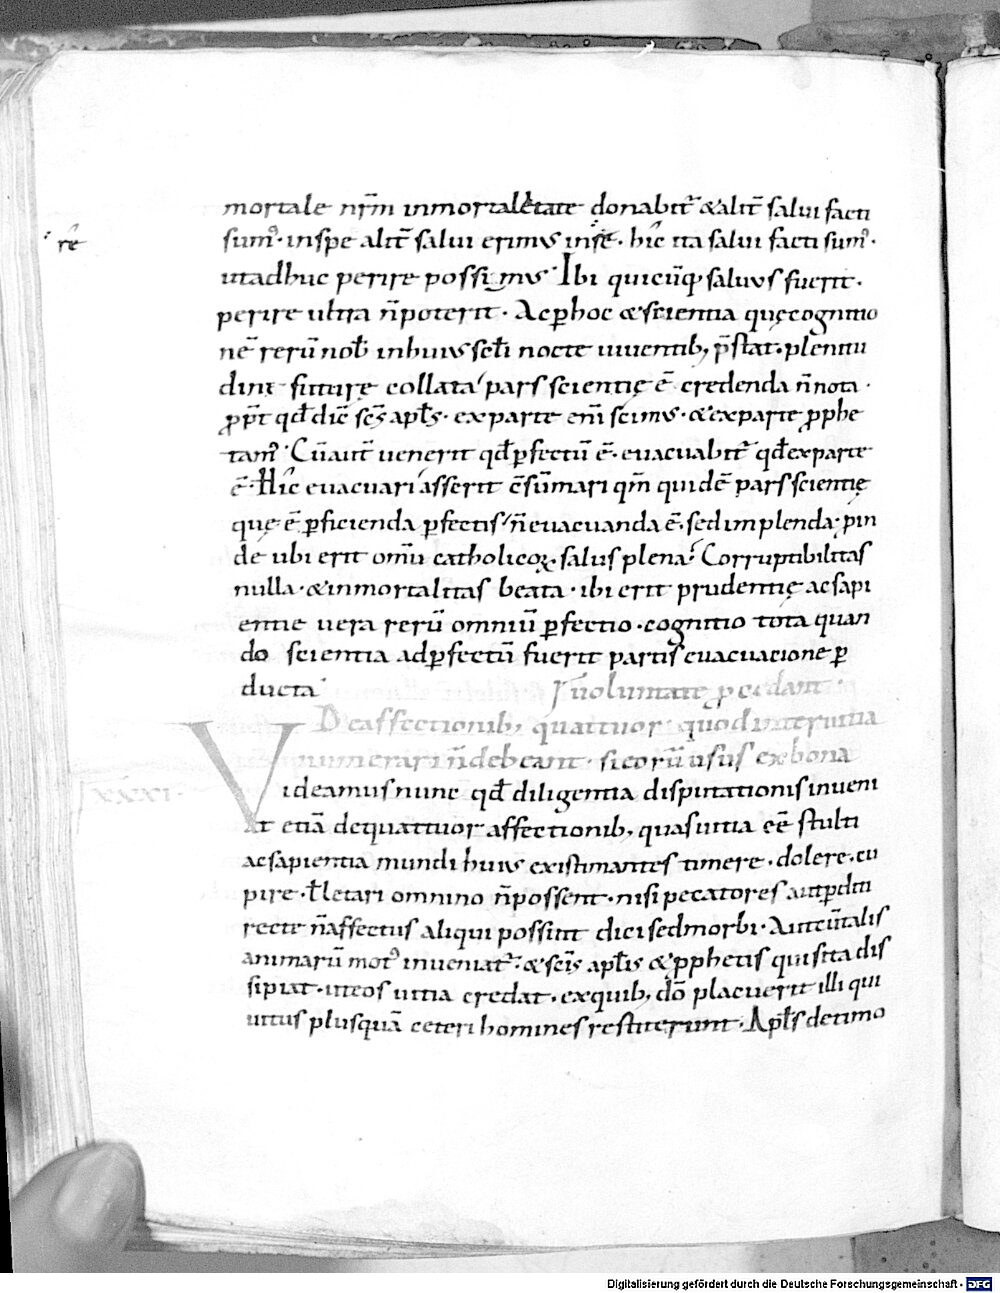 mortale nr̄m inmortalẽtate donabit᷑ & alit̄ salui facti
rē
sum᷒ · in spe alit̄ salui erimus in sē · hic ita salui facti sum᷒ ·
ut adhuc perire possimus · Ibi quicūq; saluus fuerit ·
perire ultra n̄ poterit · Ac ꝑ hoc & scientia quę cognitio
nē rerū nob̄ in huius scl̄i nocte uiuentib; p̄stat · plenitu
dini futurę collata pars scientię ē credenda n̄ nota ·
ꝓpt̄ qd̄ dic̄ sc̄s apl̄s · ex parte eni̅ scimus · & ex parte ꝓphe
tam᷒ · Cū aut̄ uenerit qd̄ ꝑfectū ē · euacuabit᷑ qd̄ ex parte
ē · Hic euacuari asserit c̄sūmari qm̄ quidē pars scientię
quę ē ꝑficienda ꝑfectis n̄ euacuanda ē · sed implenda · pin
de ubi erit omiū catholicoꝝ salus plena · Corruptibilitas
nulla · & inmortalitas beata · ibi erit prudentię ac sapi
entie uera rerū omniū ꝑfectio · cognitio tota quan
do scientia ad ꝑfectū fuerit partis euacuatione ꝑ
ducta ·
De affectionib; quattuor quod inter uitia
numerari n̄ debeant · si eorū usus ex bona
ū uoluntate ꝓcedant ·
xxxxi ·
Videamus nunc qd̄ diligentia disputationis inueni
at etiā de quattuor affectionib; quas uitia eē stulti
ac sapientia mundi huius existimantes timere · dolere · cu
pire · t̄ letari omnino n̄ possent · nisi peccatores aut ꝑditi
recte n̄ affectus aliqui possint dici sed morbi · Aut cū talis
animarū mot᷒ inueniat᷑ · & sc̄is apl̄is & ꝓphetis quis ita dis
sipiat · ut eos uitia credat · ex quib; dō placuerit illi qui
uitus plus quā ceteri homines restiterunt · Apl̄s de timo
Digitalisierung gefördert durch die Deutsche Forschungsgemeinschaft - DFG